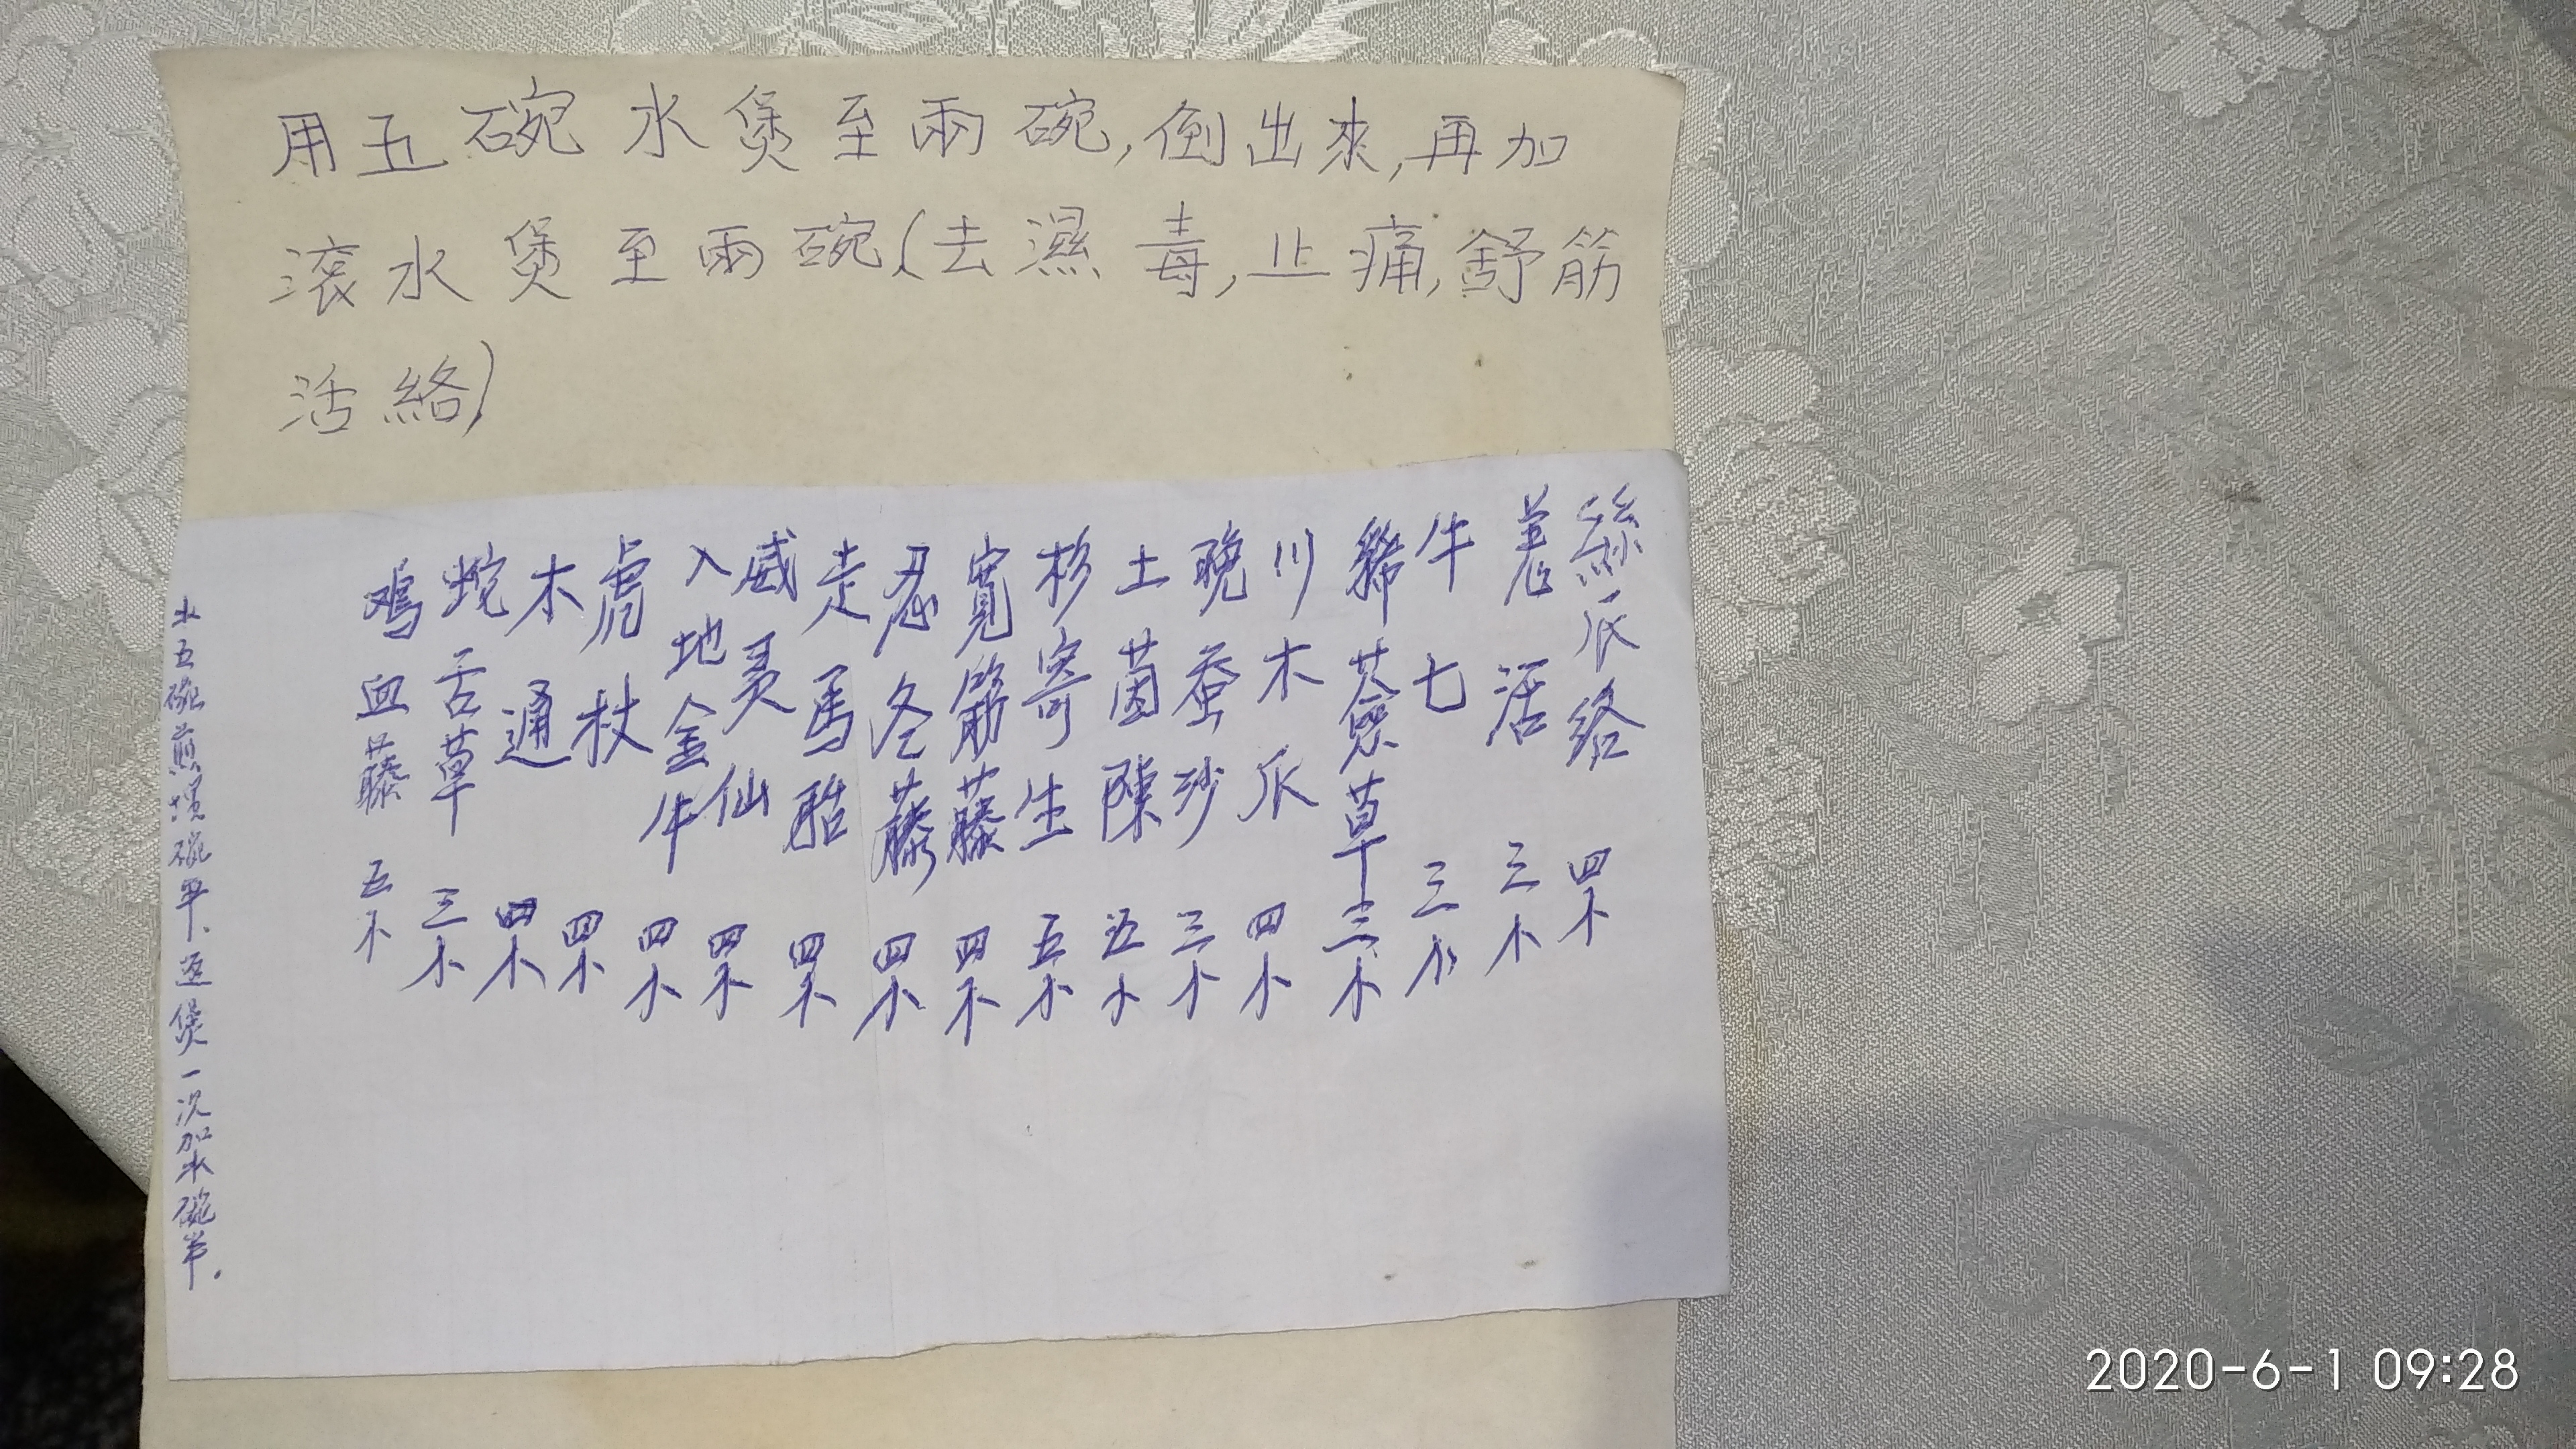 用五碗水煲至兩碗,倒出來,再加
滾水煲至兩碗(去濕毒,止痛,舒筋
活絡)
絲瓜絡 四不
羗活 三不
牛七 三不
豨薟草 三不
川木瓜 四不
晚蚕沙 三不
土茵陳 五不
杉寄生 五不
寬筋藤 四不
忍冬藤 四不
走馬胎 四不
威灵仙 四不
入地金牛 四不
虎杖 四不
木通 四不
蛇舌草 三不
鸡血藤 五不
水五碗煎埋碗半、返煲一次加水碗半.
2020-6-1 09:28